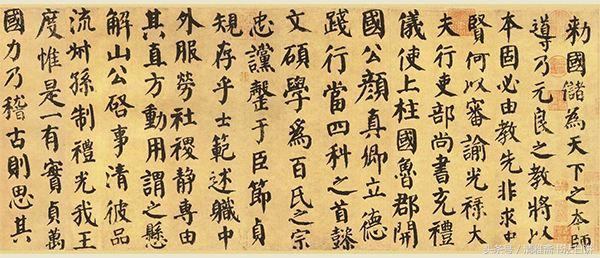 敕國儲為天下之本師
導乃元良之教將以
本固必由教先非求忠
賢何以審諭光祿大
夫行吏部尚書充禮
儀使上柱國魯郡開
國公顏真卿立德
踐行當四科之首懿
文碩學為百氏之宗
忠讜罄于臣節貞
規存乎士範述軄中
外服勞社稷靜專由
其直方動用謂之懸
解山公啓事清彼品
流州孫制禮光我王
度惟是一有實貞萬
國力乃稽古則思其
头条号 /